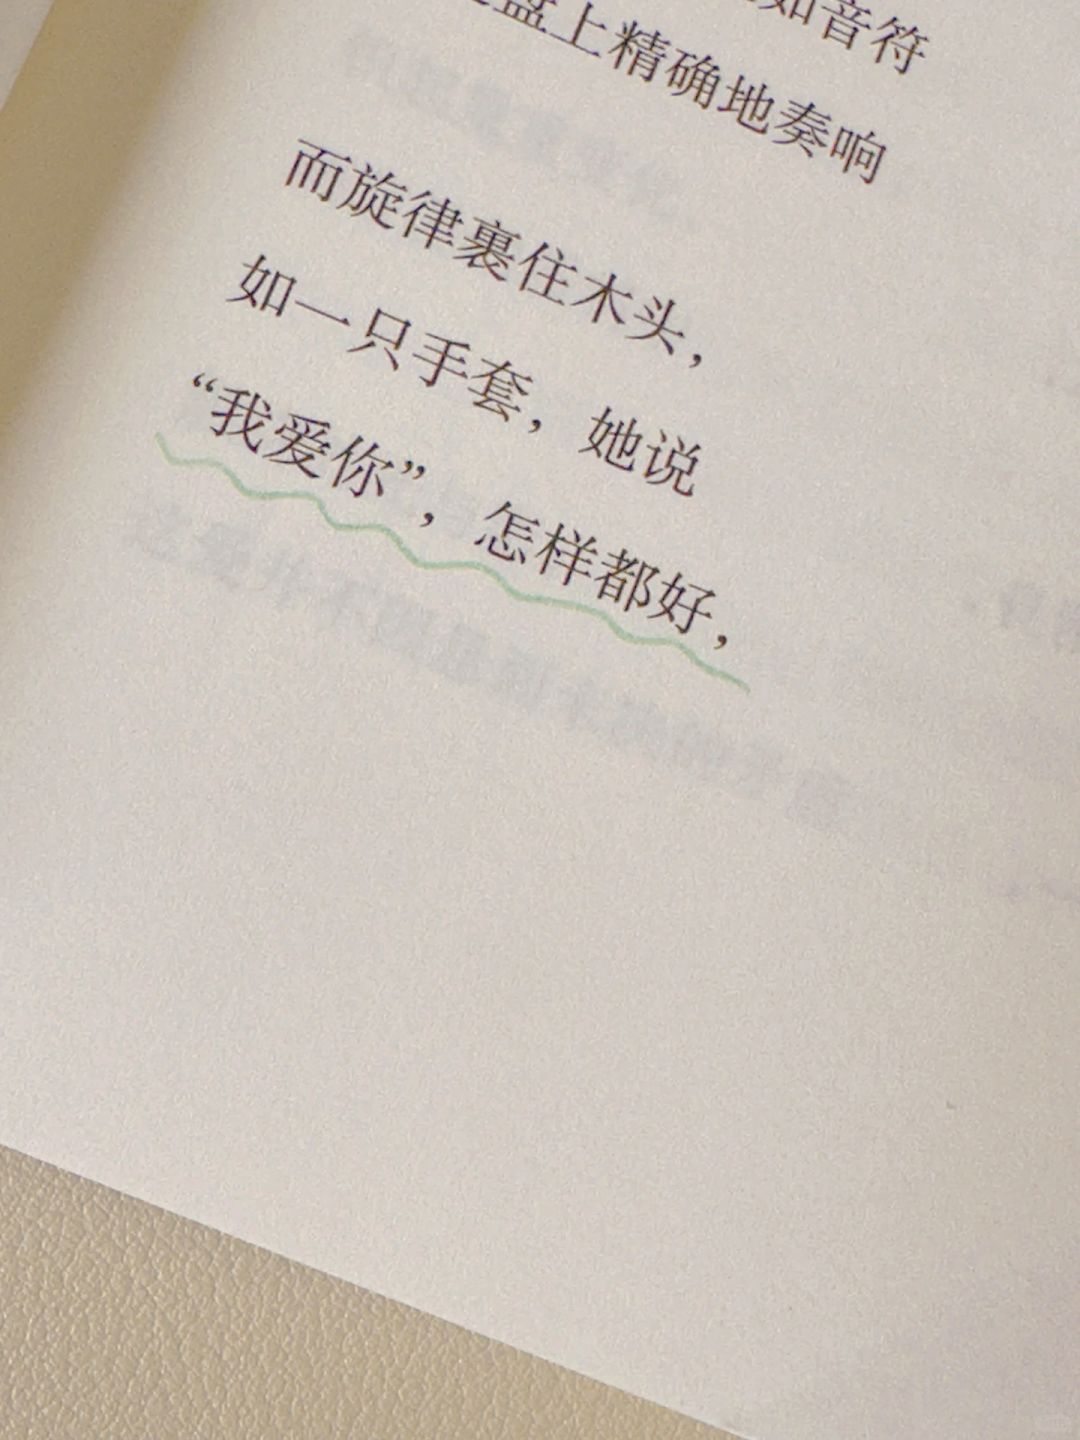 如音符
盘上精确地奏响
而旋律裹住木头，
如一只手套，她说
“我爱你”，怎样都好，